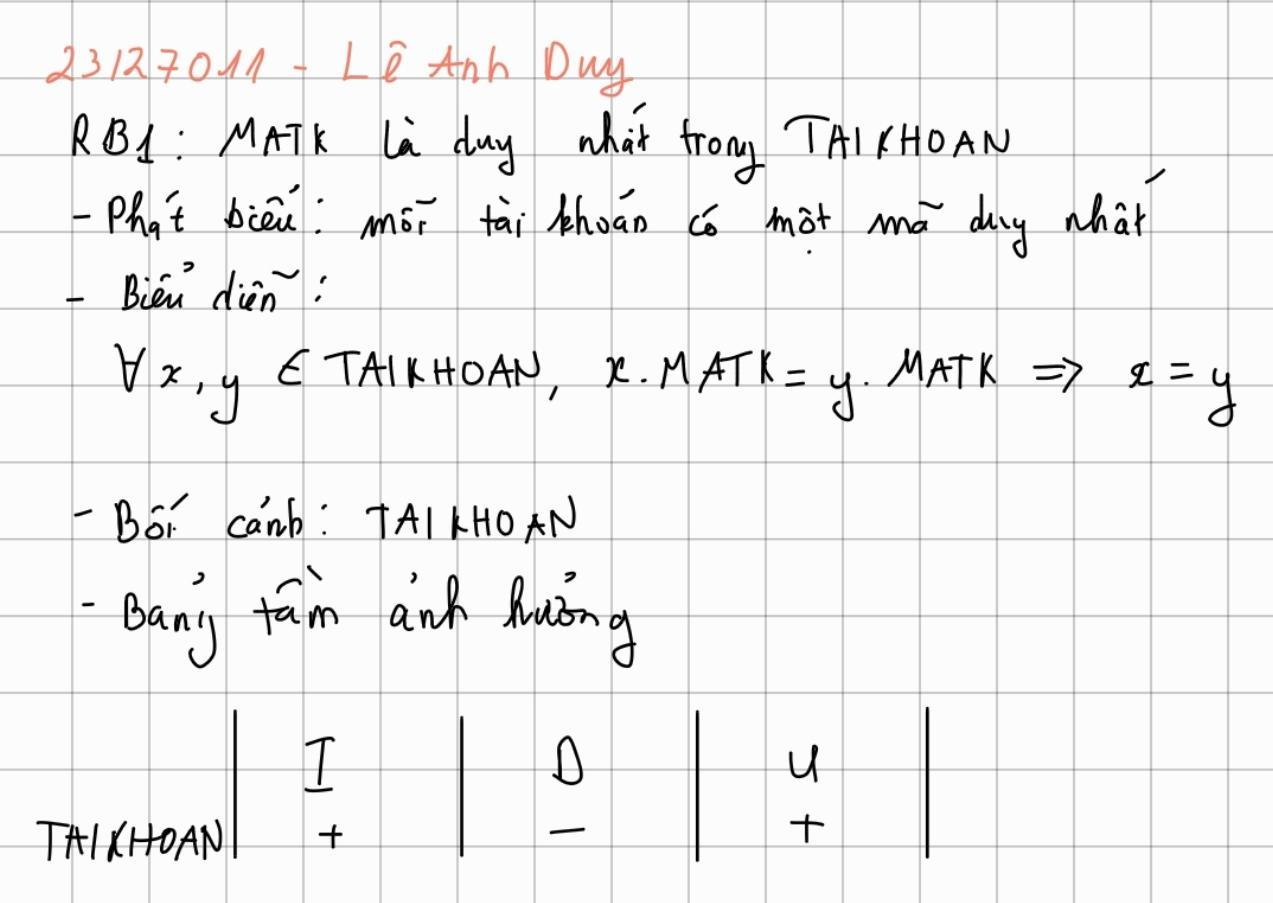 23127011 - Lê Anh Duy
RB1: MATK là duy nhất trong TAIKHOAN
- Phát biểu: mỗi tài khoản có một mã duy nhất
- Biểu diễn:
∀x, y ∈ TAIKHOAN, x.MATK = y.MATK => x = y
- Bối cảnh: TAIKHOAN
- Bảng tầm ảnh hưởng
I D U
TAIKHOAN + - +